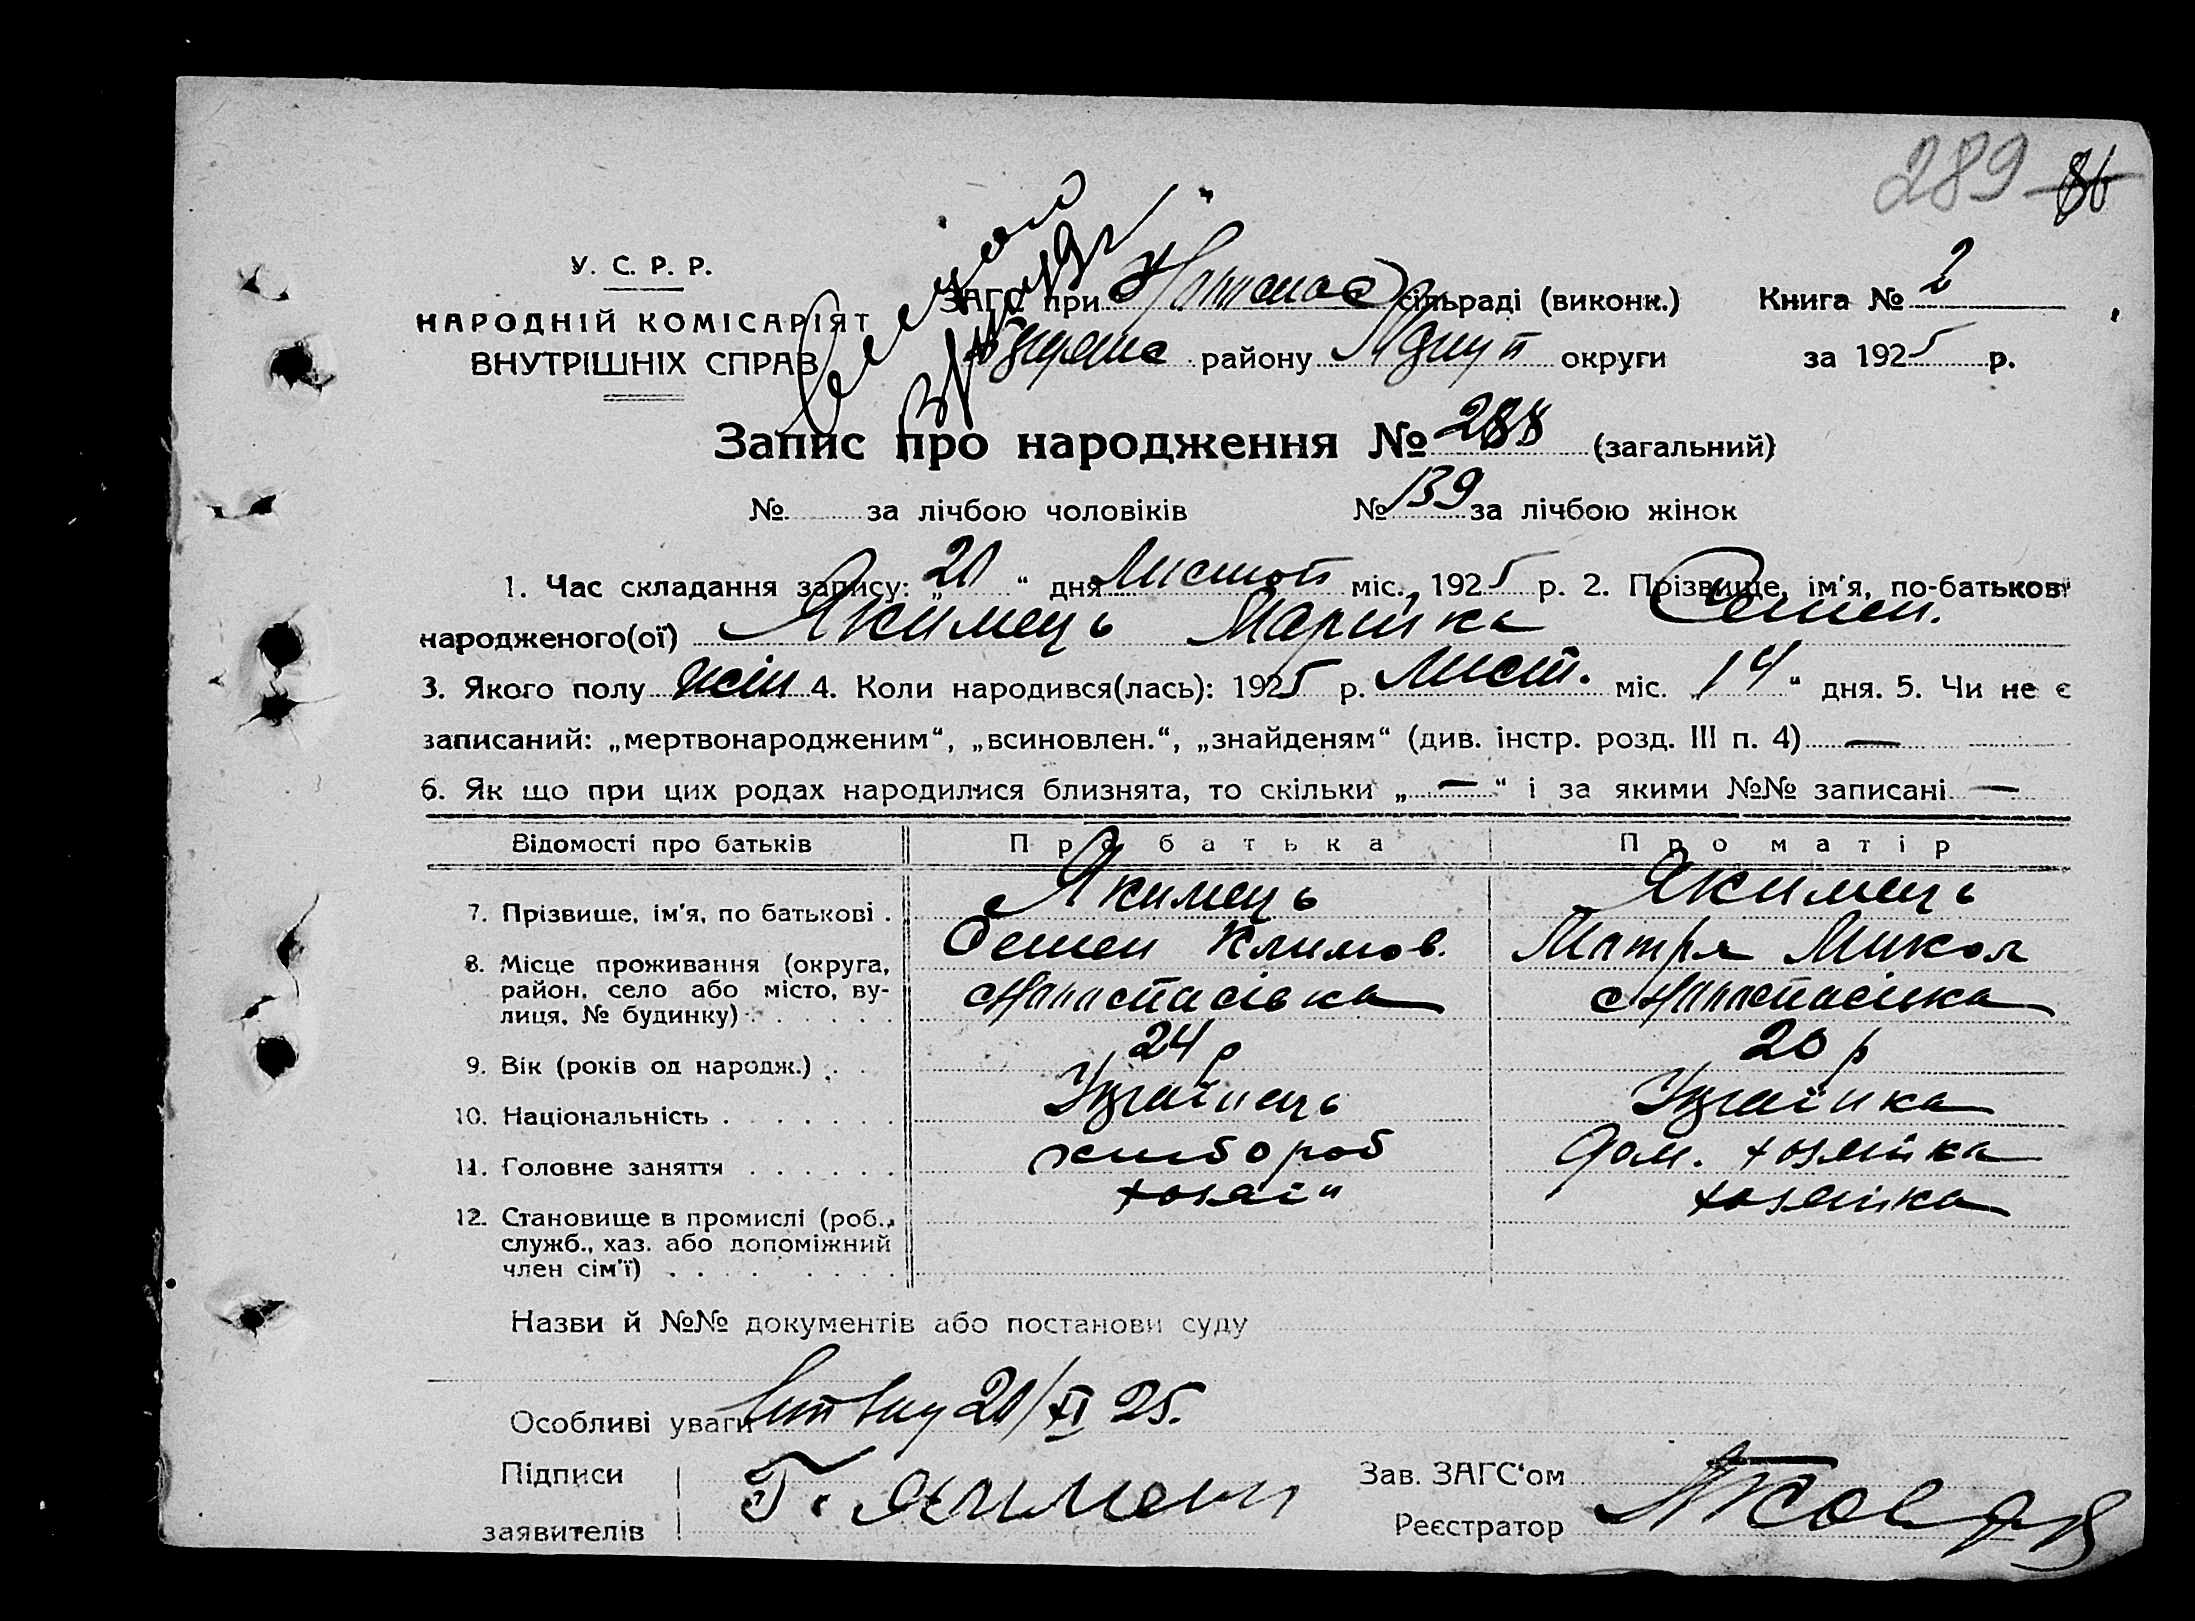 289 86
У. С. Р. Р.
НАРОДНІЙ КОМІСАРІЯТ
ВНУТРІШНІХ СПРАВ
ЗАГС при сільраді (виконк.) Книга № 2
району округи за 1925 р.
Запис про народження № 288 (загальний)
№ за лічбою чоловіків № 139 за лічбою жінок
1. Час складання запису: „20“ дня Листоп міс. 1925 р. 2. Прізвище, ім'я, по-батькові
народженого(ої) Якимець Марійка Семен.
3. Якого полу жін 4. Коли народився(лась): 1925 р. Лист. міс. „14“ дня. 5. Чи не є
записаний: „мертвонародженим“, „всиновлен.“, „знайденям“ (див. інстр. розд. III п. 4) —
6. Як що при цих родах народилися близнята, то скільки „—“ і за якими №№ записані —
Відомості про батьків Про батька Про матір
7. Прізвище, ім'я, по батькові . Якимець Якимець
Семен Климов. Мотря Микол
8. Місце проживання (округа,
район, село або місто, ву-
лиця, № будинку) . . . . . . с Анастасівка с Анастасівка
9. Вік (років од народж.) . . . 24 р 20 р
10. Національність . . . . . . . Українець Українка
11. Головне заняття . . . . . . хлібороб Дом. хозяйка
12. Становище в промислі (роб.,
служб., хаз. або допоміжний
член сім'ї) . . . . . . . . хозяїн хозяйка
Назви й №№ документів або постанови суду
Особливі уваги 20/XI 25.
Підписи
заявителів
Зав. ЗАГС‘ом
Реєстратор